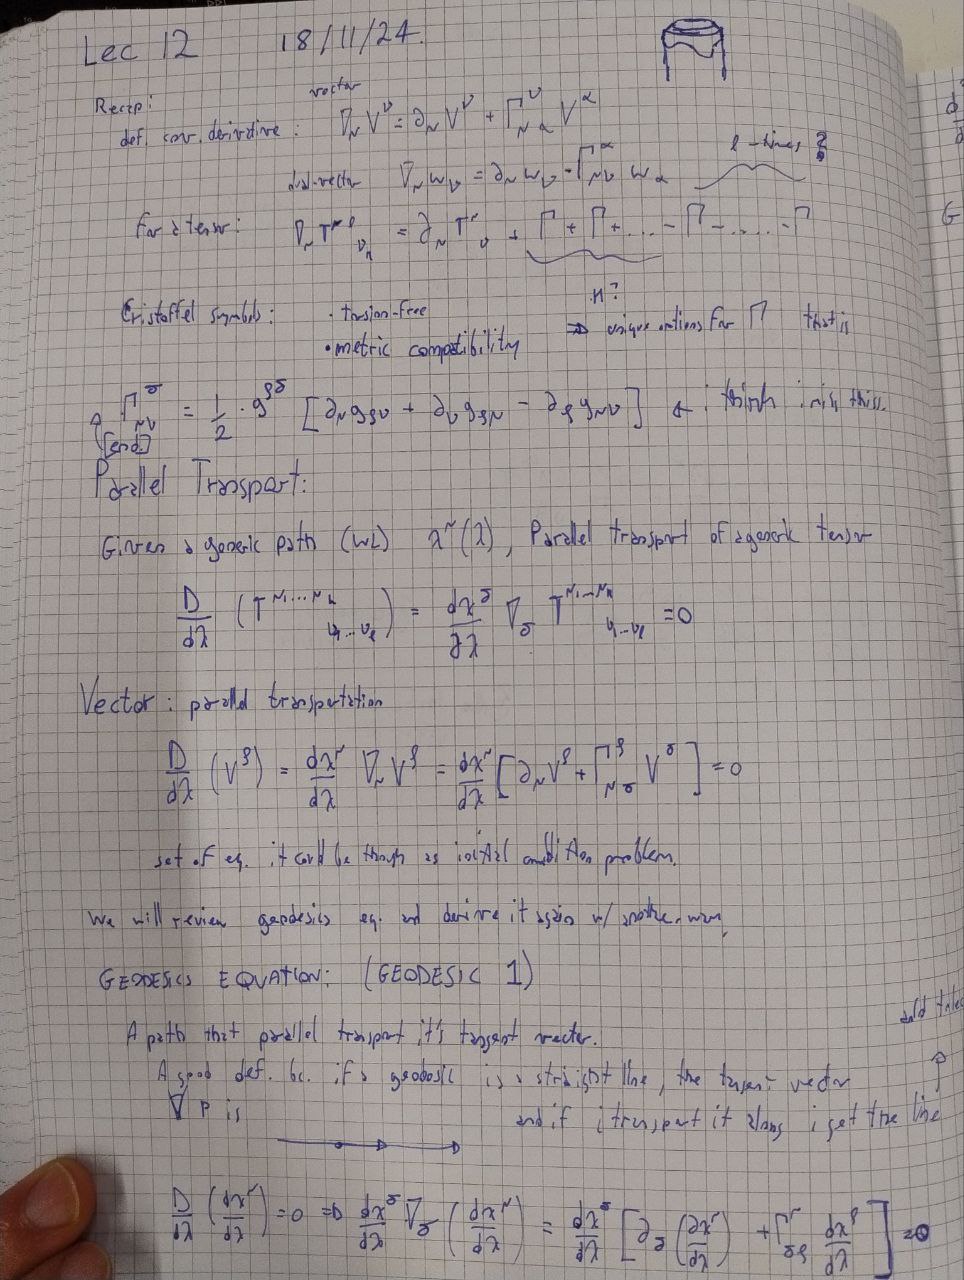 Lec 12 18/11/24.
Recap: vector
def. cov. derivative : ∇_μ V^ν = ∂_μ V^ν + Γ^ν_{μα} V^α
dual-vector ∇_μ w_ν = ∂_μ w_ν - Γ^α_{μν} w_α l-times ?
For a tensor: = ∂_μ T^μ_ν + Γ + Γ + ... - Γ - ..... - Γ
n?
Cristoffel symbols: · torsion-free
• metric compatibility ⇒ unique options for Γ that is
Γ^σ_{μν} = 1/2 · g^{ρσ} [∂_μ g_{ρν} + ∂_ν g_{ρμ} - ∂_ρ g_{μν}] think i miss this.
Parallel Transport:
Given a generic path (WL) x^μ(λ), Parallel transport of a generic tensor
D/dλ (T^{μ_1...μ_k}_{ν_1...ν_l}) = dx^σ/dλ ∇_σ T^{μ_1...μ_k}_{ν_1...ν_l} = 0
Vector: parallel transportation
D/dλ (V^ρ) = dx^μ/dλ ∇_μ V^ρ = dx^μ/dλ [∂_μ V^ρ + Γ^ρ_{μσ} V^σ] = 0
set of eq. it could be though as initial condition problem.
We will review geodesics eq. and derive it again w/
GEODESICS EQUATION: (GEODESIC 1)
A path that parallel transport it's tangent vector.
A good def. bc. if a geodesic is a straight line, the tangent vector
∇ P is and if i transport it along i get the line
D/dλ (dx^μ/dλ) = 0 ⇒ dx^σ/dλ ∇_σ (dx^μ/dλ) = dx^σ/dλ [∂_σ (∂x^μ/dλ) + Γ^μ_{σρ} dx^ρ/dλ] = 0